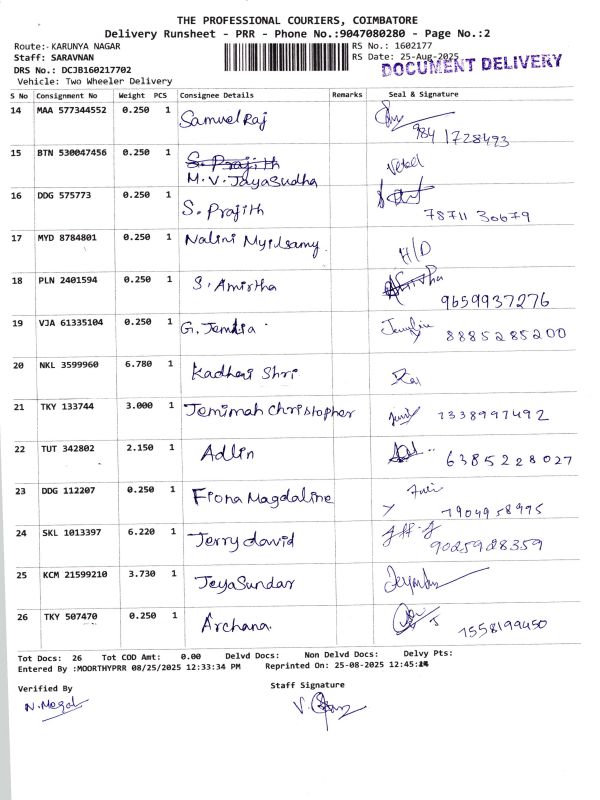 THE PROFESSIONAL COURIERS, COIMBATORE
Delivery Runsheet - PRR - Phone No.:9047080280 - Page No.:2
Route:- KARUNYA NAGAR RS No.: 1602177
Staff: SARAVNAN RS Date: 25-Aug-2025
DRS No.: DCJB160217702 DOCUMENT DELIVERY
Vehicle: Two Wheeler Delivery
S No Consignment No Weight PCS Consignee Details Remarks Seal & Signature
14 MAA 577344552 0.250 1 Samuel Raj 9841728493
15 BTN 530047456 0.250 1 S. Prajith
M.V. JayaSudha
16 DDG 575773 0.250 1 S. Prajith 78711 30679
17 MYD 8784801 0.250 1 Nalini Myilsamy H/D
18 PLN 2401594 0.250 1 S. Amirtha 9659937276
19 VJA 61335104 0.250 1 G. 8885285200
20 NKL 3599960 6.780 1 Shri
21 TKY 133744 3.000 1 Jemimah Christopher 7338997492
22 TUT 342802 2.150 1 Adlin 6385228027
23 DDG 112207 0.250 1 Fiona Magdaline 7904958995
24 SKL 1013397 6.220 1 Jerry david 9025988359
25 KCM 21599210 3.730 1 JeyaSundar
26 TKY 507470 0.250 1 Archana. 7558199450
Tot Docs: 26 Tot COD Amt: 0.00 Delvd Docs: Non Delvd Docs: Delvy Pts:
Entered By :MOORTHYPRR 08/25/2025 12:33:34 PM Reprinted On: 25-08-2025 12:45:
Verified By Staff Signature